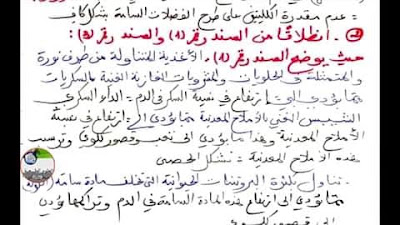 = عدم مقدرة الكليتين على طرح الفضلات السامة بشكل كاف
انطلاقا من السند رقم (1) والسند رقم (2) :
حيث يوضح السند رقم (1) . الأغذية المتناولة من طرف نورة
والمتمثلة في الحلويات والمشروبات الغازية الغنية بالسكريات
مما يؤدي إلى = ارتفاع في نسبة السكر في الدم = الداء السكري
الغني بالأملاح المعدنية مما يؤدي إلى = ارتفاع في نسبة
الأملاح المعدنية وهذا ما يؤدي إلى تعب وقصور كلوي وترسب
هذه الأملاح المعدنية = تشكل الحصى
- تناول بكثرة البروتينات الحيوانية التي تخلف مادة سامة
مما يؤدي إلى ارتفاع هذه المادة السامة في الدم وتراكمها يؤدي
إلى قصور كلوي